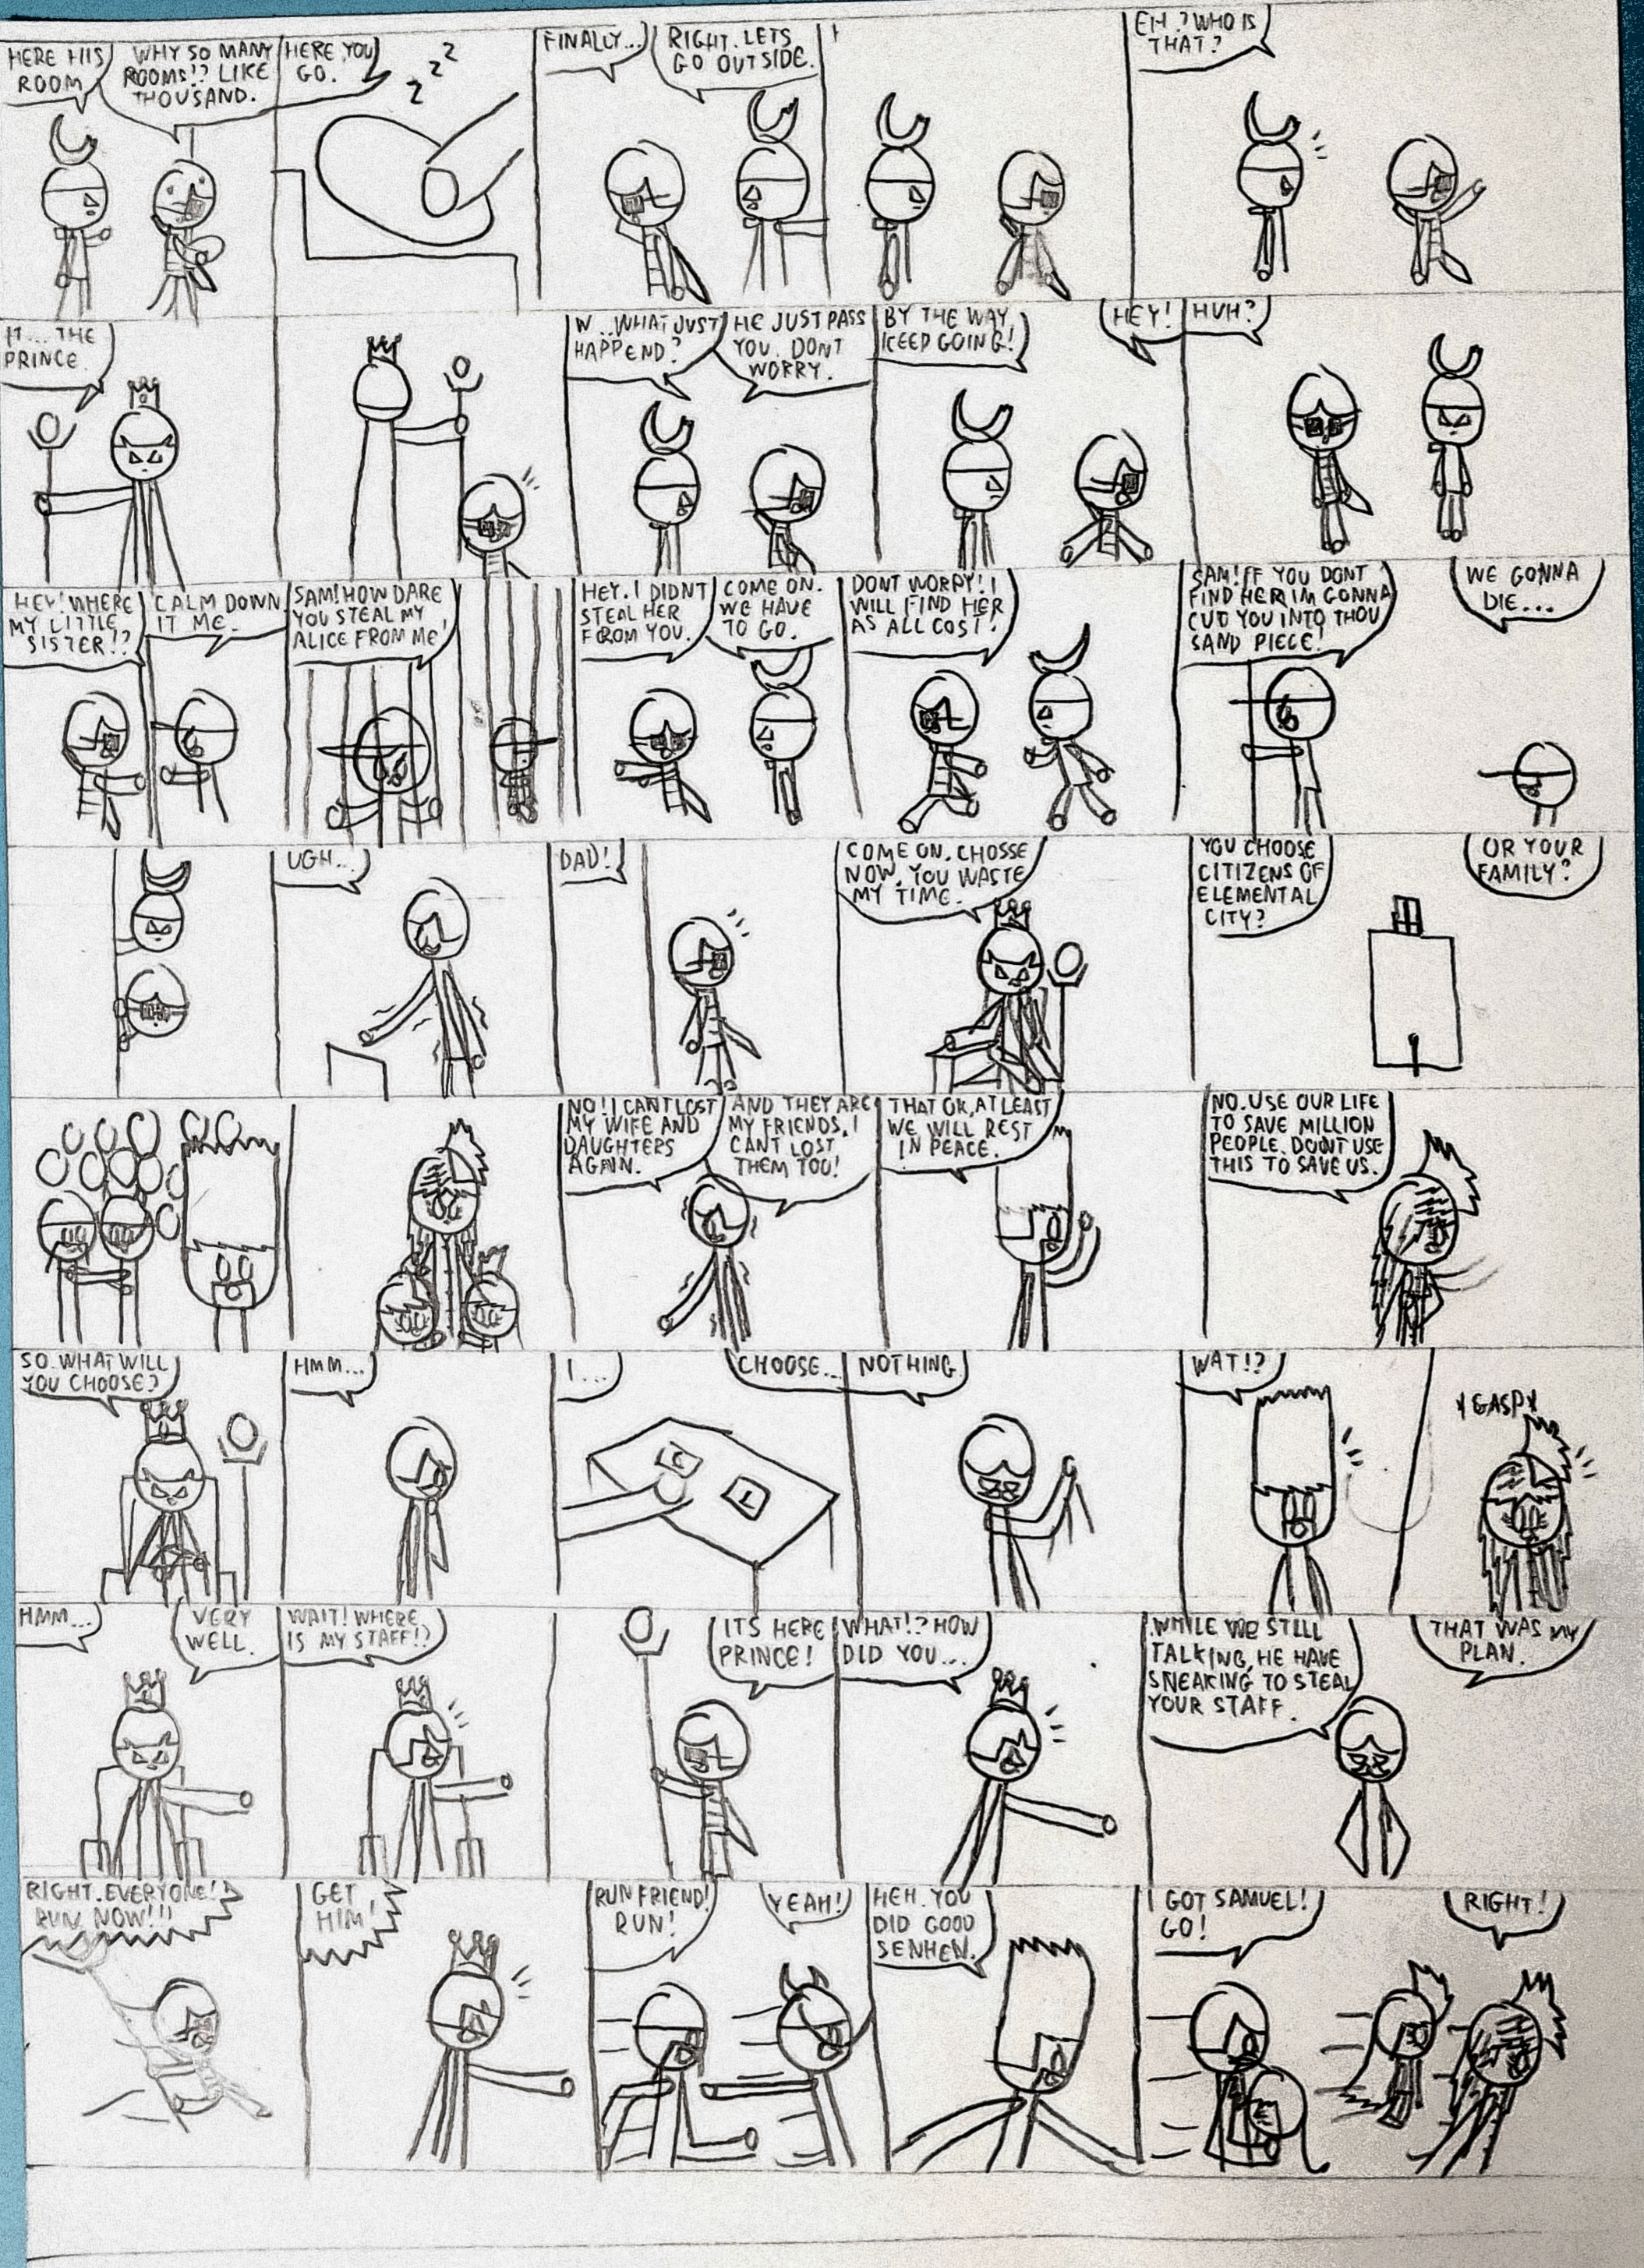 HERE HIS
ROOM
WHY SO MANY
ROOMS!? LIKE
THOUSAND.
HERE YOU
GO.
Z Z Z
FINALLY...
RIGHT. LETS
GO OUTSIDE.
EH? WHO IS
THAT?
IT... THE
PRINCE.
W...WHAT JUST
HAPPEND?
HE JUST PASS
YOU. DONT
WORRY.
BY THE WAY
KEEP GOING!
HEY!
HUH?
HEY! WHERE
MY LITTLE
SISTER!?
CALM DOWN
IT ME.
SAM! HOW DARE
YOU STEAL MY
ALICE FROM ME!
HEY. I DIDNT
STEAL HER
FROM YOU.
COME ON.
WE HAVE
TO GO.
DONT WORRY! I
WILL FIND HER
AS ALL COST!
SAM! IF YOU DONT
FIND HER IM GONNA
CUT YOU INTO THOU
SAND PIECE!
WE GONNA
DIE...
UGH...
DAD!
COME ON. CHOSSE
NOW, YOU WASTE
MY TIME.
YOU CHOOSE
CITIZENS OF
ELEMENTAL
CITY?
OR YOUR
FAMILY?
NO! I CANT LOST
MY WIFE AND
DAUGHTERS
AGAIN.
AND THEY ARE
MY FRIENDS. I
CANT LOST
THEM TOO!
THAT OK, AT LEAST
WE WILL REST
IN PEACE.
NO. USE OUR LIFE
TO SAVE MILLION
PEOPLE. DONT USE
THIS TO SAVE US.
SO. WHAT WILL
YOU CHOOSE?
HMM...
I...
CHOOSE...
C
L
NOTHING
WAT!?
*GASP*
HMM...
VERY
WELL.
WAIT! WHERE
IS MY STAFF!?
ITS HERE
PRINCE!
WHAT!? HOW
DID YOU...
WHILE WE STILL
TALKING, HE HAVE
SNEAKING TO STEAL
YOUR STAFF.
THAT WAS MY
PLAN.
RIGHT. EVERYONE!
RUN NOW!!!
GET
HIM!
RUN FRIEND!
RUN!
YEAH!
HEH. YOU
DID GOOD
SENHEN.
I GOT SAMUEL!
GO!
RIGHT!